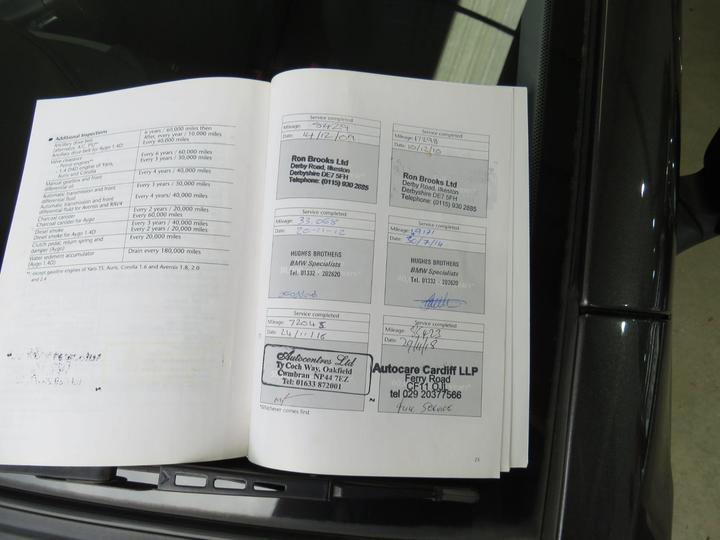 Additional Inspections
Ancillary drive belt 6 years / 60,000 miles then
(alternator, A/C, PS)* After, every year / 10,000 miles
Ancillary drive belt for Aygo 1.4D Every 40,000 miles
Valve clearance
- Petrol engines* Every 6 years / 60,000 miles
- 1.4 D4D engine of Yaris, Every 3 years / 30,000 miles
Auris and Corolla
Manual gearbox and front Every 4 years / 40,000 miles
differential oil
Automatic transmission and front Every 3 years / 30,000 miles
differential fluid
Automatic transmission and front Every 4 years/ 40,000 miles
differential fluid for Avensis and RAV4
Charcoal canister Every 2 years / 20,000 miles
Charcoal canister for Aygo Every 60,000 miles
Diesel smoke Every 3 years / 40,000 miles
Diesel smoke for Aygo 1.4D Every 2 years / 20,000 miles
Clutch pedal, return spring and Every 20,000 miles
damper (Aygo)
Water sediment accumulator Drain every 180,000 miles
(Aygo 1.4D)
*: except gasoline engines of Yaris TS, Auris, Corolla 1.6 and Avensis 1.8, 2.0
and 2.4
Service completed
Mileage:
Date: 14/12/09
Ron Brooks Ltd
Derby Road, Ilkeston
Derbyshire DE7 5FH
Telephone: (0115) 930 2885
Service completed
Mileage: 17298
Date: 10/12/10
Ron Brooks Ltd
Derby Road, Ilkeston
Derbyshire DE7 5FH
Telephone: (0115) 930 2885
Service completed
Mileage: 33,068
Date: 20-11-12
HUGHES BROTHERS
BMW Specialists
Tel. 01332 - 202620
Service completed
Mileage:
Date: 30/7/14
HUGHES BROTHERS
BMW Specialists
Tel. 01332 - 202620
Service completed
Mileage: 72045
Date: 24/11/16
Autocentres Ltd
Ty Coch Way, Oakfield
Cwmbran NP44 7EZ
Tel: 01633 872001
Service completed
Mileage:
Date: 29/4/18
Autocare Cardiff LLP
Ferry Road
CF11 OJL
tel 029 20377566
Full Service
*Whichever comes first